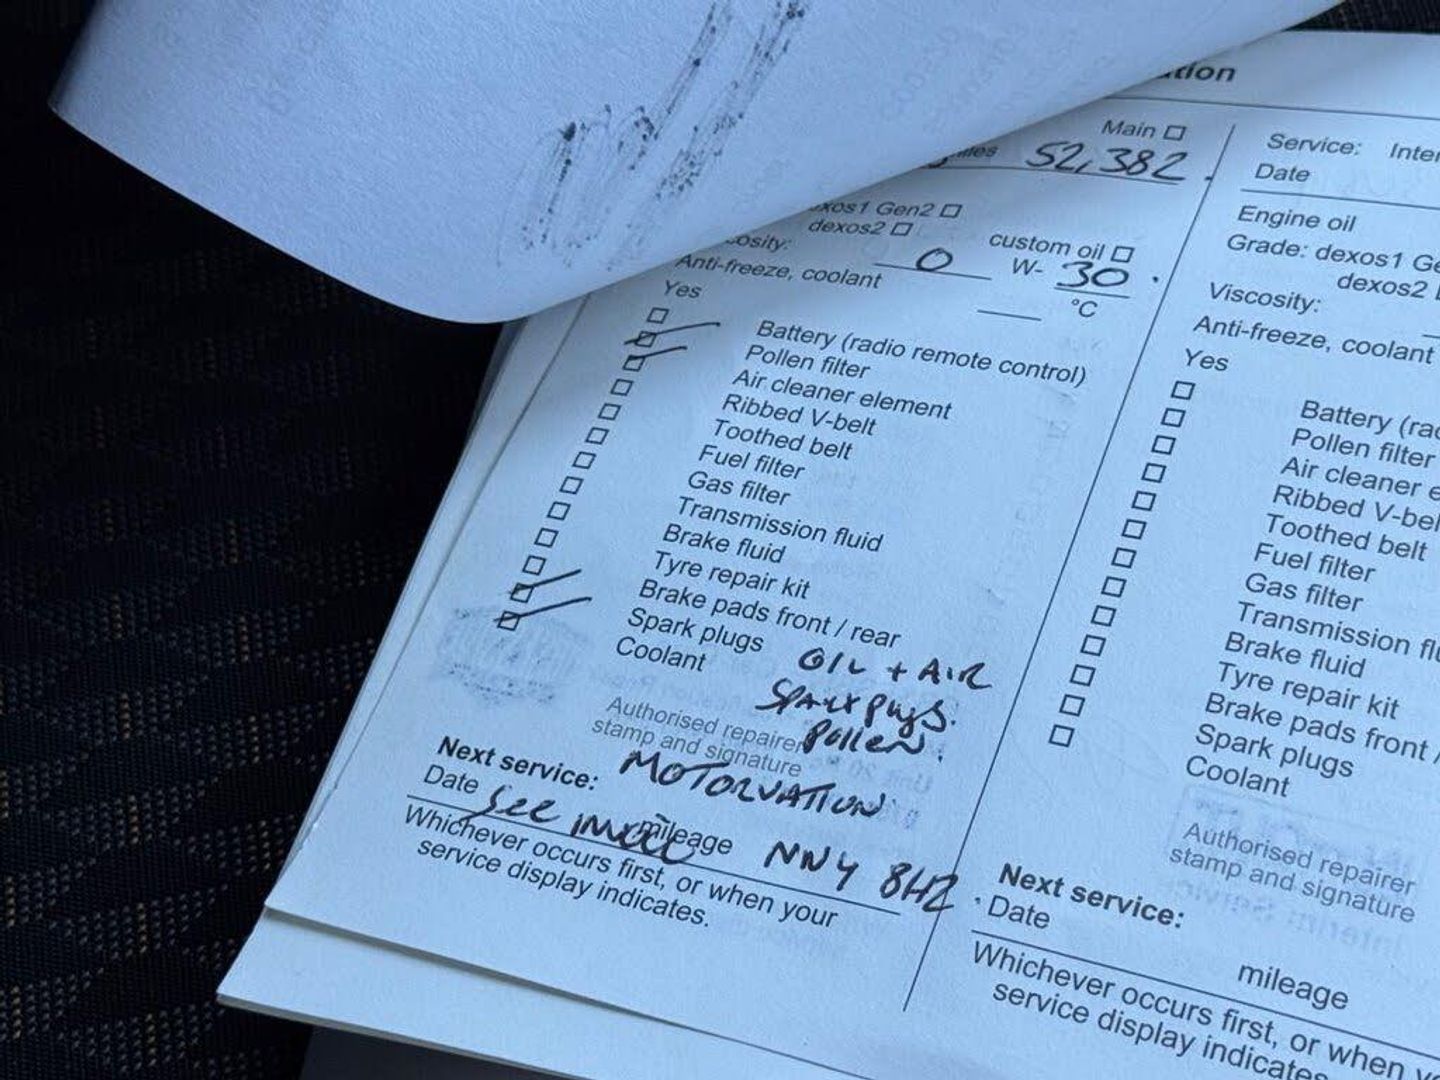 Main ☐
52,382.
Gen2 ☐
dexos2 ☐
custom oil ☐
0 W- 30.
Anti-freeze, coolant °C
Yes
Battery (radio remote control)
Pollen filter
Air cleaner element
Ribbed V-belt
Toothed belt
Fuel filter
Gas filter
Transmission fluid
Brake fluid
Tyre repair kit
Brake pads front / rear
Spark plugs
Coolant
OIL + AIR
Spark plugs.
Pollen.
Authorised repairer
stamp and signature
Next service: MOTORVATION
Date see mileage NN4 8HZ.
Whichever occurs first, or when your
service display indicates.
Service:
Date
Engine oil
Grade: dexos1
dexos2
Viscosity:
Anti-freeze, coolant
Yes
Battery
Pollen filter
Air cleaner
Ribbed
Toothed belt
Fuel filter
Gas filter
Transmission
Brake fluid
Tyre repair kit
Brake pads front /
Spark plugs
Coolant
Authorised repairer
stamp and signature
Next service:
Date
mileage
Whichever occurs first, or when
service display